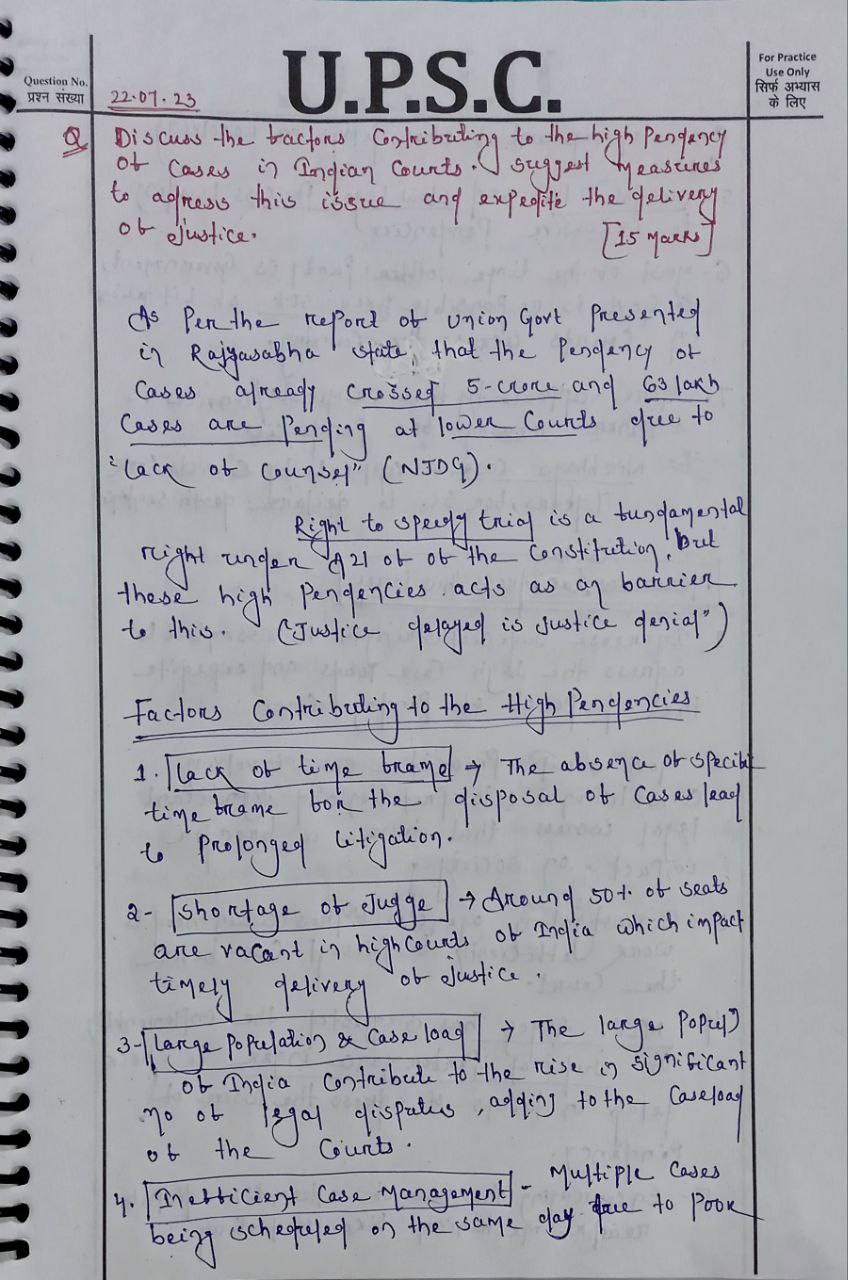 Question No.
प्रश्न संख्या
U.P.S.C.
For Practice
Use Only
सिर्फ अभ्यास
के लिए
22.07.23
Q Discuss the factors contributing to the high Pendency
of cases in Indian Courts. Suggest measures
to address this issue and expedite the delivery
of Justice. [15 Marks]
As Per the report of Union Govt Presented
in Rajyasabha state, that the Pendency of
Cases already crossed 5-crore and 63 lakh
Cases are Pending at lower Courts due to
"lack of Counsel" (NJDG).
Right to speedy trial is a fundamental
right under A21 of of the Constitution, but
these high Pendencies acts as an barrier
to this. ("Justice delayed is Justice denial")
Factors Contributing to the High Pendencies
1. lack of time frame → The absence of specific
time frame for the disposal of Cases lead
to Prolonged litigation.
2- Shortage of Judge → Around 50% of seats
are vacant in high Courts of India which impact
timely delivery of Justice.
3- Large Population & Case load → The large Popul^n
of India Contribute to the rise in significant
no of legal disputes, adding to the Caseload
of the Courts.
4. Inefficient Case Management - Multiple Cases
being scheduled on the same day due to Poor